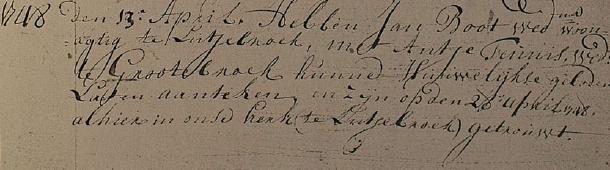 1748 Den 13e April. Hebben Jan Boot wedr woon-
agtig te Lutjebroek, met Antje Teunis, wede
te Grootebroek hunne Huwelijkse geloden
Laten aanteken, en zijn op den 28e April 1748.
alhier in onse kerk (te Lutjebroek) getrouwt.